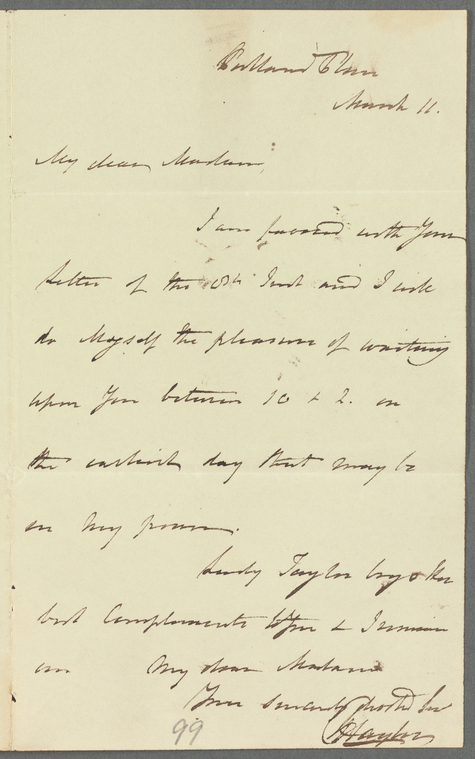 Portland Place
March 11.
My dear Madam,
I am favored with Your
letter of the 8th Inst and I will
do Myself the pleasure of waiting
upon You between 10 & 2. on
the earliest day that may be
in My power.
Lady Taylor begs Her
best Compliments to You & I remain
My dear Madam
Your sincerely devoted Ser
HTaylor
99